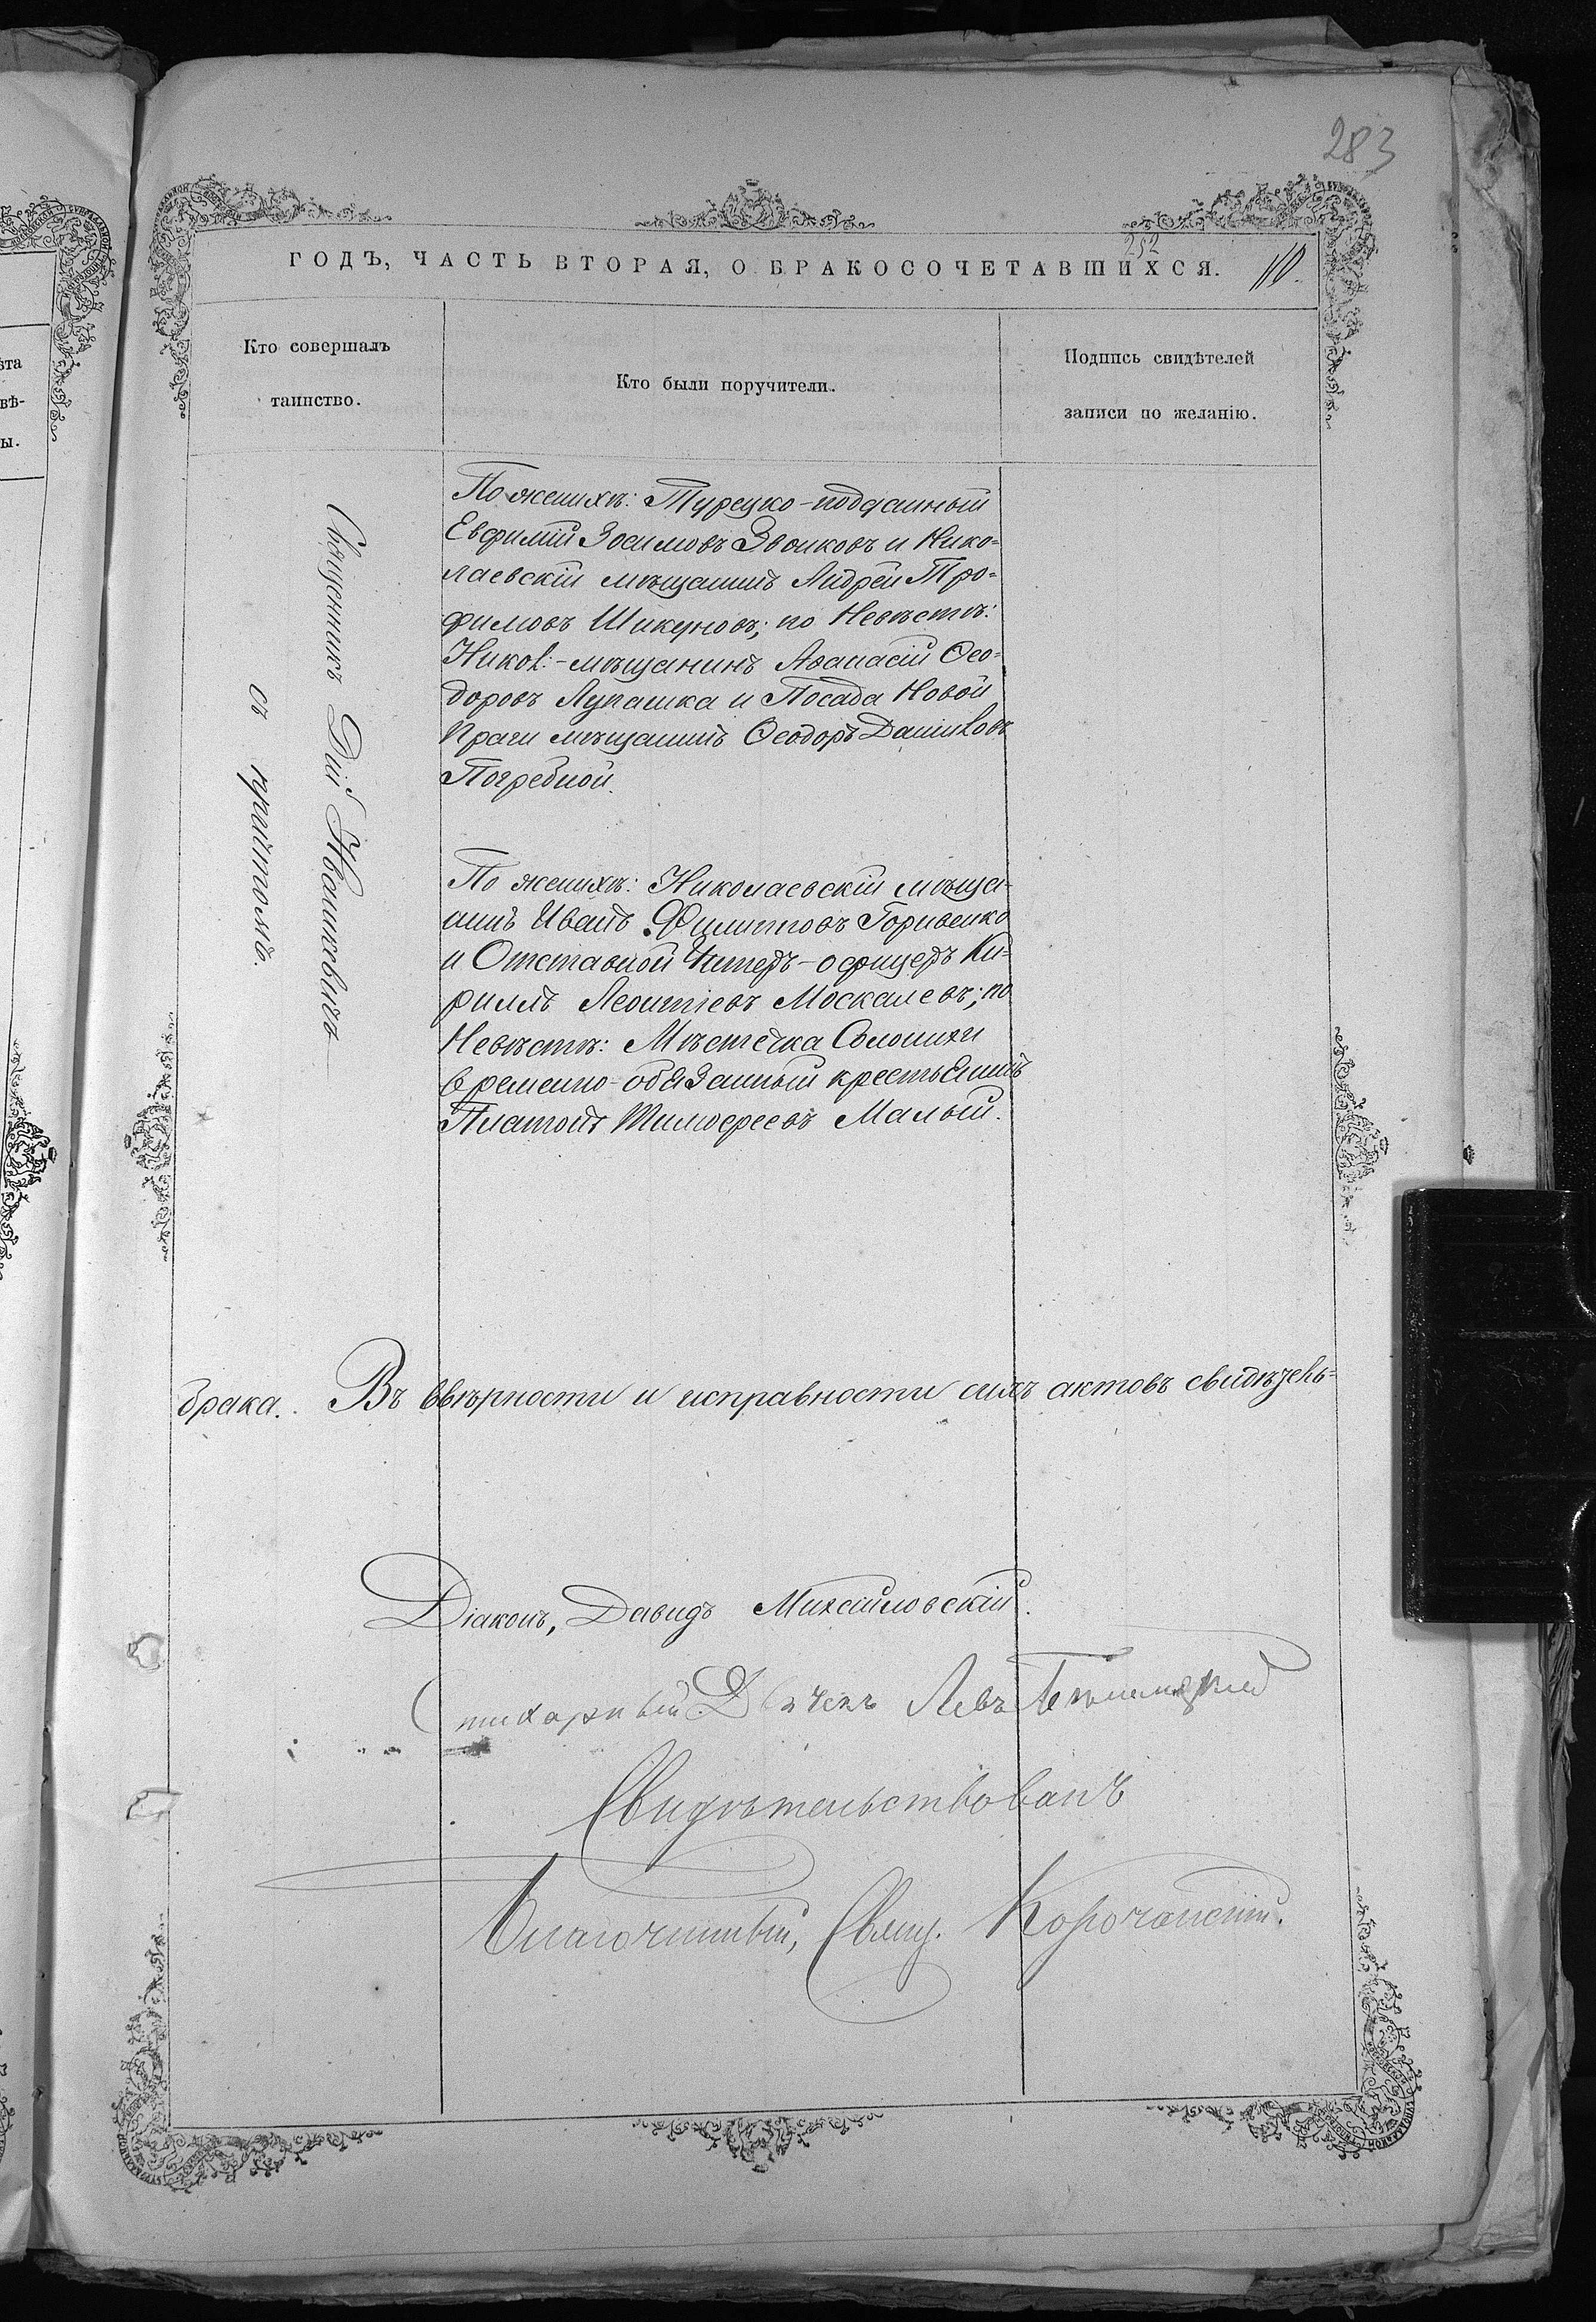 283
252
ГОДЪ, ЧАСТЬ ВТОРАЯ, О БРАКОСОЧЕТАВШИХСЯ.
Кто совершалъ
таинство.
Кто были поручители.
Подпись свидѣтелей
записи по желанію.
Священникъ Дій Иванкевичъ
съ причтомъ.
По женихѣ: Турецко-подданный
Евфимій Зосимовъ Звонковъ и Нико-
лаевскій мѣщанинъ Андрей Тро-
фимовъ Шикуновъ; по Невѣстѣ:
Никол:-мѣщанинъ Аѳанасій Ѳео-
доровъ Лупашка и Посада Новой
Праги мѣщанинъ Ѳеодоръ Даниловъ
Погребной.
По женихѣ: Николаевскій мѣща-
нинъ Иванъ Филиповъ Горивенко
и Отставной Унтеръ-офицеръ Ки-
риллъ Леонтіевъ Москалевъ; по
Невѣстѣ: Мѣстечка Соломихи
временно-обязанный крестьянинъ
Платонъ Тимофеевъ Малый.
брака. Въ ввѣрности и исправности сихъ актовъ свидѣтель-
Діаконъ, Давидъ Михайловскій.
Стихарный Дьячекъ Левъ
Свидѣтельствовалъ
Благочинный, Свящ. Корочанскій.